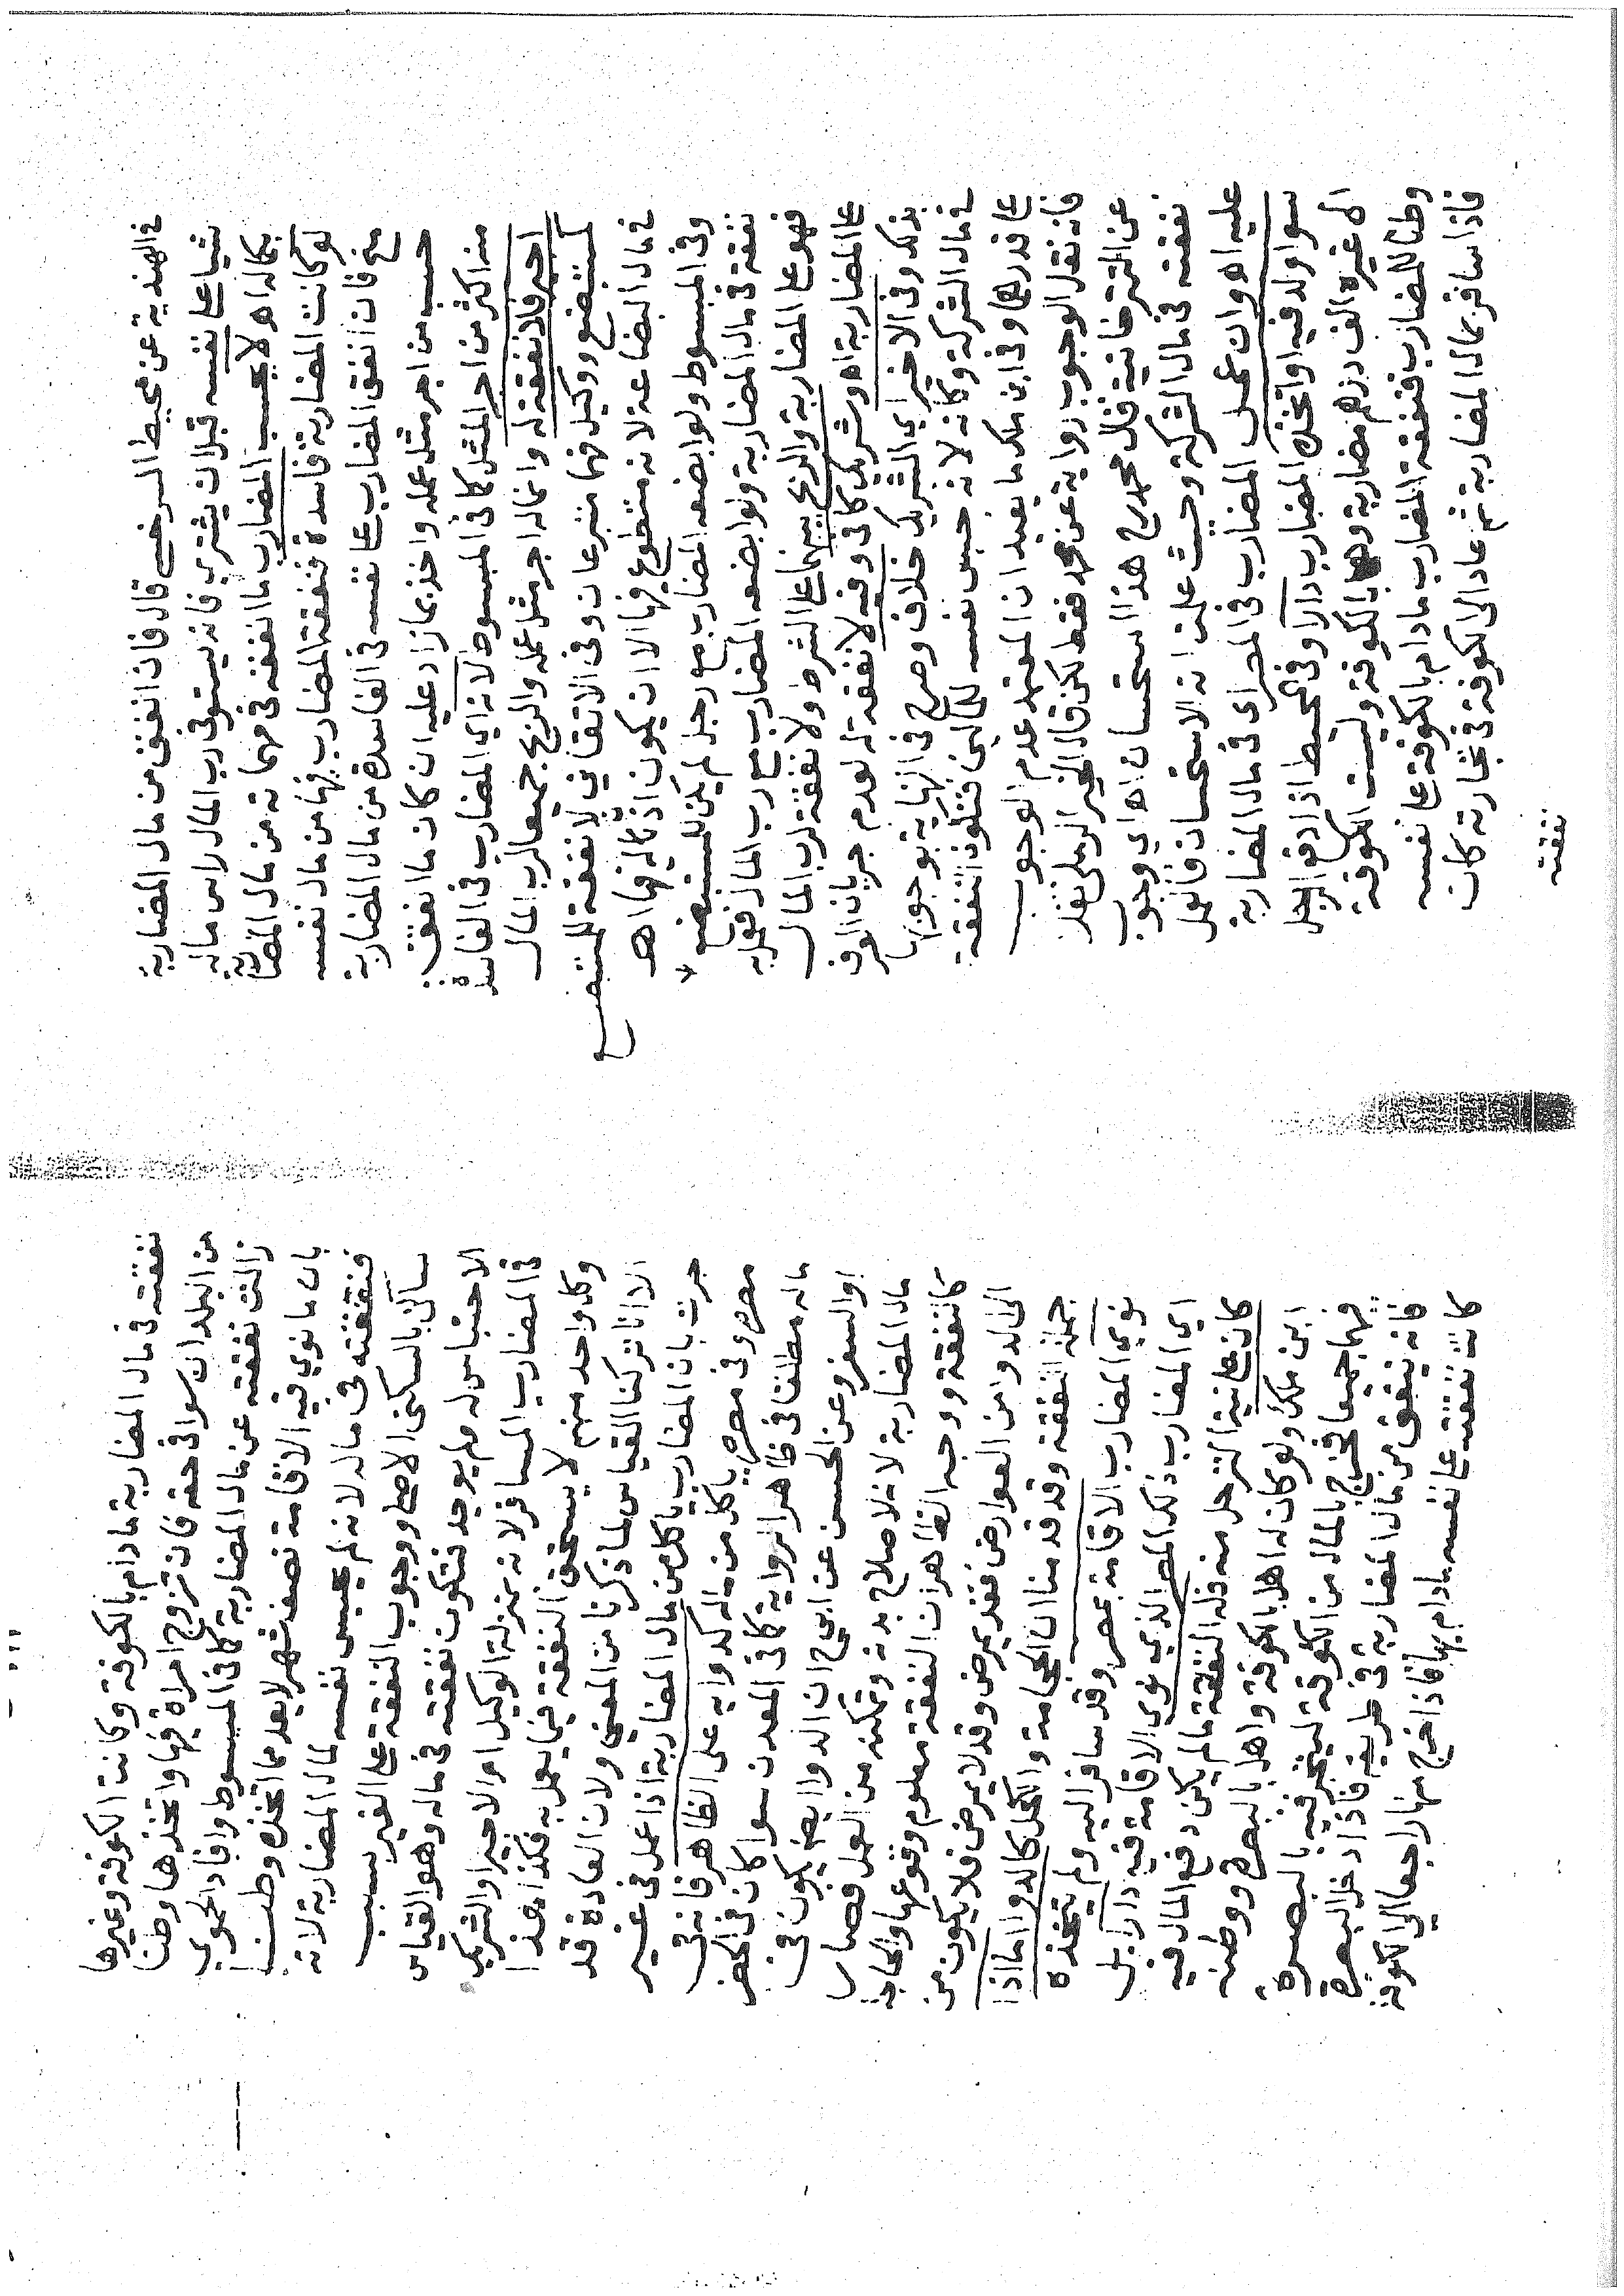 في الهندية عن محيط السرخسي قال فان انفق من مال المضاربة
شيا على نفسه قبل ان يشتري فانه يستوفي رب المال راس ماله
بكماله اه لا يحسب المضارب ما انفقه في مهماته من مال المضاربة
لو كانت المضاربة فاسدة فنفقة المضارب فيها من مال نفسه
منح فان انفق المضارب على نفسه في الفاسدة من مال المضاربة
حسب من اجر مثل عمله واخذ بما زاد عليه ان كان ما انفق
منه اكثر من اجر المثل كما في المبسوط لانه اي المضارب في الفاسدة
اجير فلا نفقة له وانما له اجر مثل عمله والربح جميعا لرب المال
كمستبضع ووكيل فهما متبرعان وفي الاتقاني لا نفقة للمستبضع
في مال البضاعة لانه متطوع فيها الا ان يكون اذن له فيها اه
وفي المبسوط ولو ابضعه المضارب مع رجل لم يكن للمستبضع
نفقة في مال المضاربة ولو ابضعه المضارب مع رب المال فعمل به
فهو على المضاربة والربح بينهما على الشرط ولا نفقة لرب المال
على المضاربة اه وشريك كافي وفيه لا نفقة له لعدم جريان العرف
بذلك وفي الاخير اي الشريك خلاف وصرح في النهاية بوجوبها
في مال الشركة وكانه لانه حبس نفسه للمالين فتكون النفقة
على قدرهما وفي ابن ملك ما يفيد ان المعتمد عدم الوجوب
فانه نقل الوجوب رواية عن محمد فقط لكن قال الخير الرملي نقلا
عن التترخانية قال محمد رح هذا استحسان اه اي وجوب
نفقته في مال الشركة وحيث علمت انه الاستحسان فالعمل
عليه اه وان عمل المضارب في المصر اي في مال المضاربة
سوا ولد فيه او اتخذه المضارب دارا وفي المحيط اذا دفع الرجل
الى غيره الف درهم مضاربة وهما بالكوفة وليست الكوفة
وطنا للمضارب فنفقة المضارب ما دام بالكوفة على نفسه
فاذا سافر بمال المضاربة ثم عاد الى الكوفة في تجارته كانت
نفقته
نفقته في مال المضاربة ما دام بالكوفة وكانت الكوفة وغيرها
من البلدان سوا في حقه فان تزوج امراة فيها واتخذها وطنا
زالت نفقته عن مال المضاربة كما في المبسوط وافاد الحموي
بان ما نوي فيه الاقامة نصف شهر لا يعد مما اتخذه وطنا
فنفقته في ماله لانه لم يحبس نفسه لمال المضاربة لانه
ساكن بالسكنى الاصلي ووجوب النفقة على الغير سبب
الاحتباس له ولم يوجد فتكون نفقته في ماله وهو القياس
في المضارب المسافر لانه بمنزلة الوكيل او الاجير او الشريك
وكل واحد منهم لا يستحق النفقة فيما يعمل به فكذا هذا
الا انا تركنا القياس لما ذكرنا من المعنى ولان العادة قد
جرت بان المضارب ياكل من مال المضاربة اذا عمل في غير
مصره وفي مصره ياكل من ماله كدوايه على الظاهر فانه في
ماله مطلقا في ظاهر الرواية كما في المعدن سوا كان في الحضر
او السفر وعن الحسن عن ابي ح ان الدوا ايضا يكون في
مال المضاربة لانه لاصلاح بدنه وتمكنه من العمل فصار
كالنفقة ووجه الظاهر ان النفقة معلوم وقوعها والحاجة
الى الدوا من العوارض فقد يمرض وقد لا يمرض فلا يكون من
جملة النفقة وقد قدمنا ان الحجامة والكحل كالدوا اما اذا
نوي المضارب الاقامة بمصر وقد سافر اليه ولم يتخذه
اي المضارب ذلك المصر الذي نوى الاقامة فيه دارا بل
كان على نية الترحل منه فله النفقة ما لم يكن دفع المال فيه
ابن ملك ولو كان له اهل بالكوفة واهل بالبصرة ووطنه
فيهما جميعا فخرج بالمال من الكوفة ليتجر فيه بالبصرة
فانه ينفق من مال المضاربة في طريقه فاذا دخل البصرة
كانت نفقته على نفسه ما دام بها فاذا خرج منها راجعا الى الكوفة